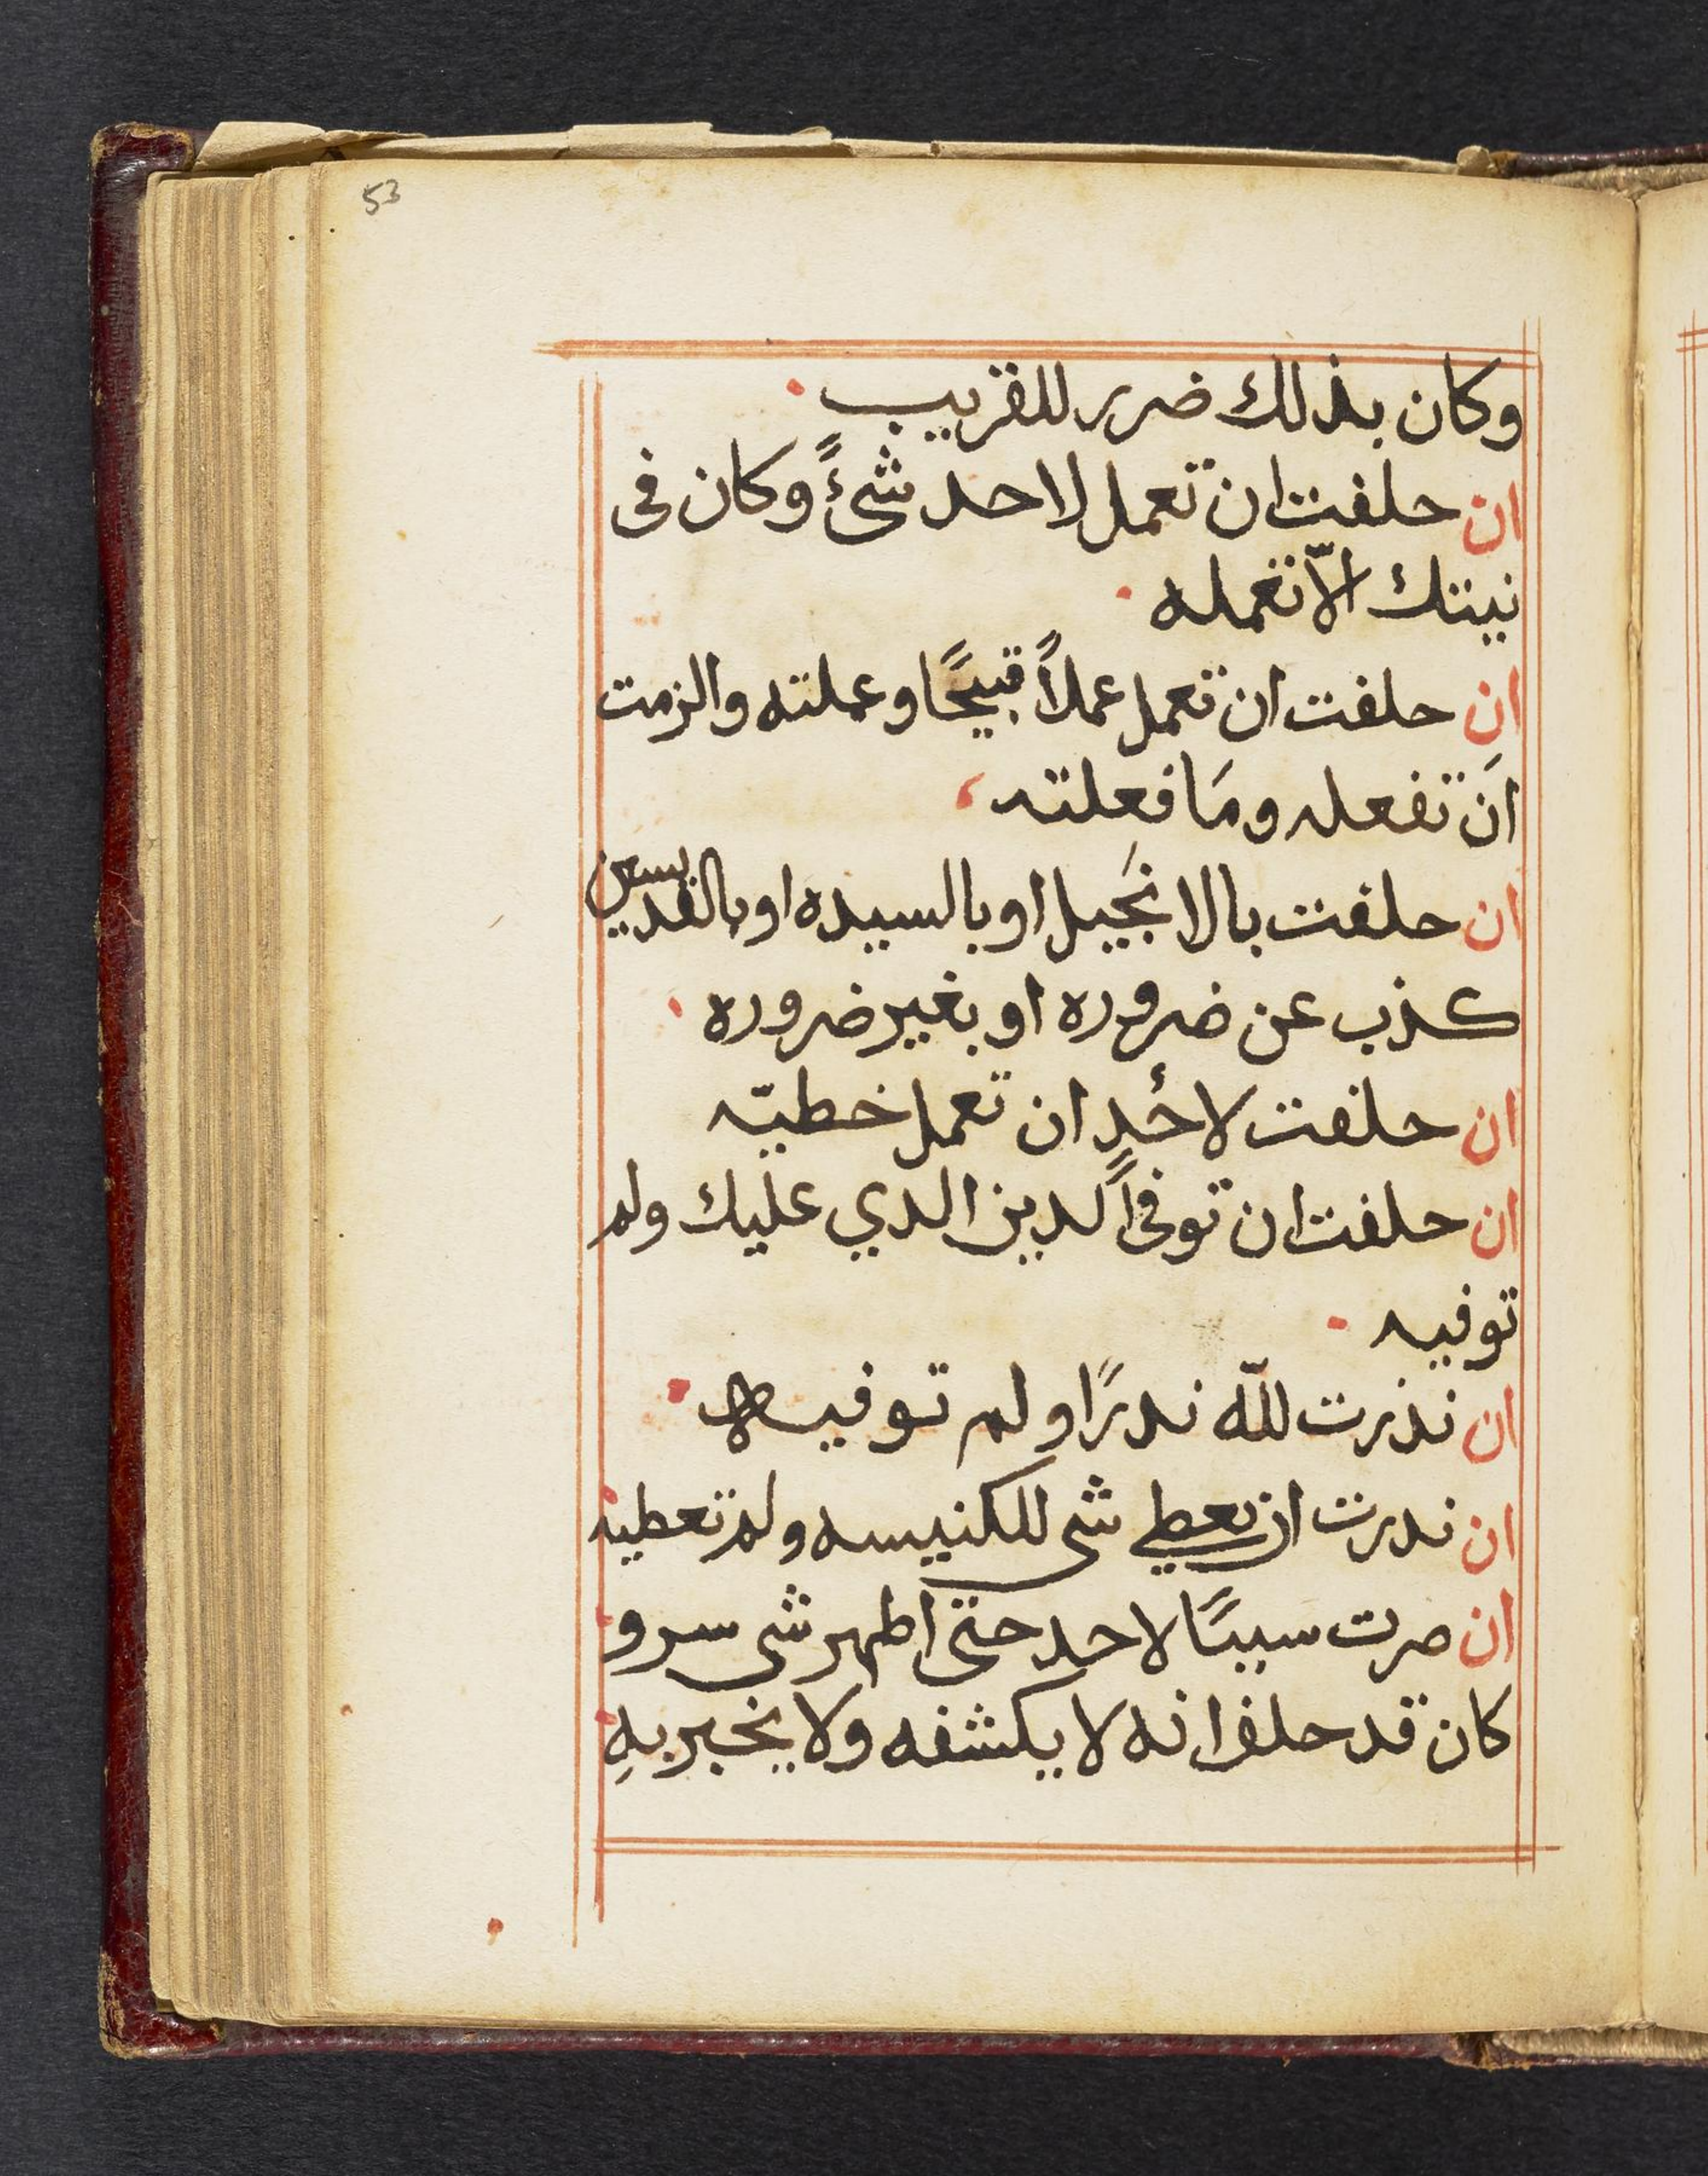 53
وكان بذلك ضرر للقريب
ان حلفت ان تعمل لاحد شئً وكان فى
نيتك الاّ تعمله
ان حلفت ان تعمل عملاً قبيحًا وعملته والزمت
اَن تفعله ومَا فعلته
ان حلفت بالانجَيل او بالسيده او بالقديسين
كذب عن ضروره او بغير ضروره
ان حلفت لأحدٍ ان تعمل خطيّه
ان حلفت ان توفى الدين الدي عليك ولم
توفيه
ان نذرت للّه ندرًا ولم توفيه
ان ندرت ان تعطي شى للكنيسه ولم تعطيه
ان صرت سببًا لاحد حتى اظهر شى سر و
كان قد حلف انه لا يكشفه ولا يخبر بهِ